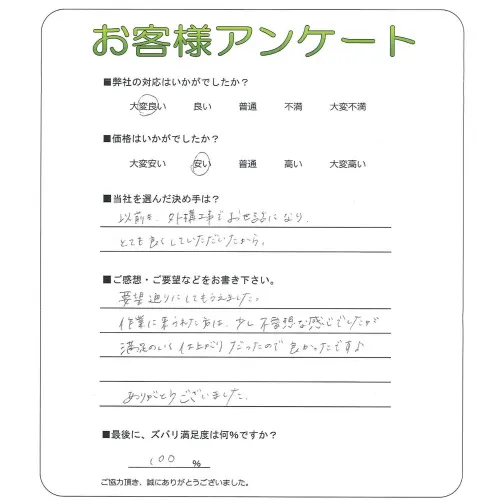 お客様アンケート
■弊社の対応はいかがでしたか？
大変良い 良い 普通 不満 大変不満
■価格はいかがでしたか？
大変安い 安い 普通 高い 大変高い
■当社を選んだ決め手は？
以前も、外構工事でお世話になり、
とても良くしていただいたから。
■ご感想・ご要望などをお書き下さい。
要望通りにしてもらえました。
作業に来られた方は、少し不愛想な感じでしたが
満足のいく仕上がりだったので良かったです♪
ありがとうございました。
■最後に、ズバリ満足度は何%ですか？
100 %
ご協力頂き、誠にありがとうございました。